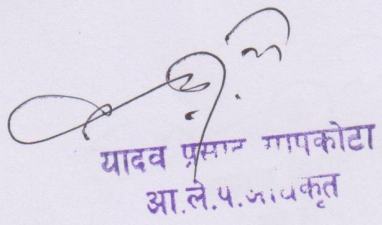 यादव प्रसाद सापकोटा
आ.ले.प. अधिकृत